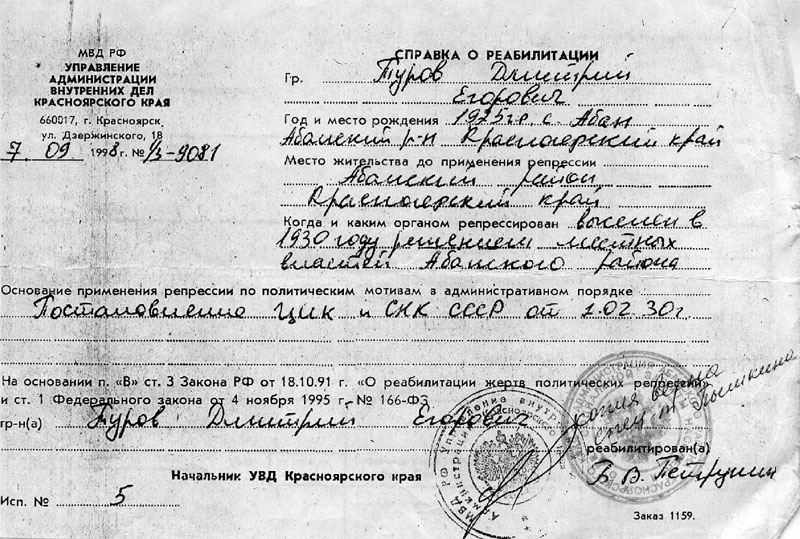 МВД РФ
УПРАВЛЕНИЕ
АДМИНИСТРАЦИИ
ВНУТРЕННИХ ДЕЛ
КРАСНОЯРСКОГО КРАЯ
660017, г. Красноярск,
ул. Дзержинского, 18
7 09 1998 г. № 1/3-9081
СПРАВКА О РЕАБИЛИТАЦИИ
Гр. Туров Дмитрий
Егорович
Год и место рождения 1925 г.р. с. Абан
Абанский р-н Красноярский край
Место жительства до применения репрессии
Абанский район
Красноярский край
Когда и каким органом репрессирован выселен в
1930 году решением местных
властей Абанского района
Основание применения репрессии по политическим мотивам в административном порядке
Постановление ЦИК и СНК СССР от 1.02.30 г.
На основании п. «В» ст. 3 Закона РФ от 18.10.91 г. «О реабилитации жертв политических репрессий»
и ст. 1 Федерального закона от 4 ноября 1995 г. № 166-ФЗ
гр-н(а) Туров Дмитрий Егорович
копия верна
реабилитирован(а)
Начальник УВД Красноярского края
Б. В. Петрунин
Исп. № 5
Заказ 1159.